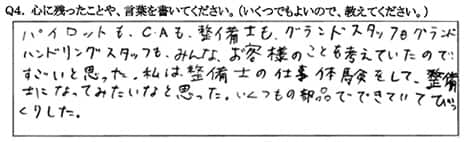 Q4. 心に残ったことや、言葉を書いてください。(いくつでもよいので、教えてください。)
パイロットも、CAも、整備士も、グランドスタッフもグランド
ハンドリングスタッフも、みんな、お客様のことを考えていたので
すごいと思った。私は整備士の仕事体験をして、整備
士になってみたいなと思った。いくつもの部品でできていてびっ
くりした。